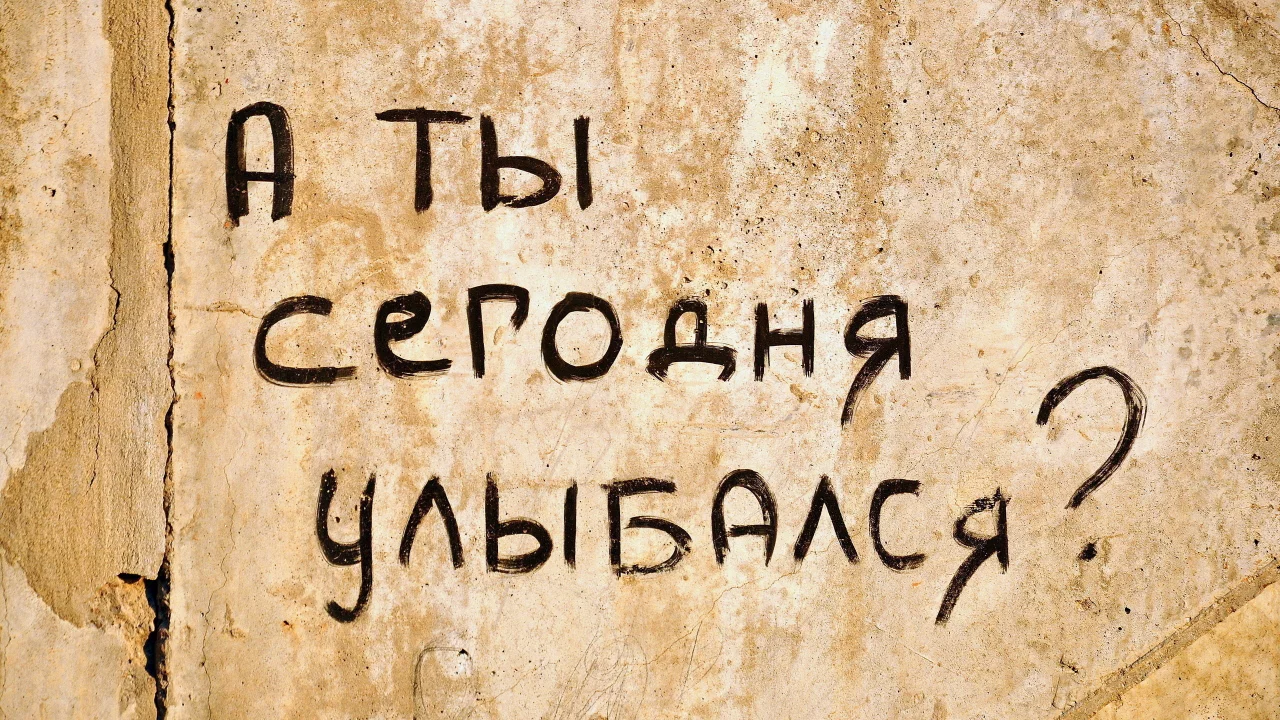 А ТЫ
сегодня
улыбАлся?